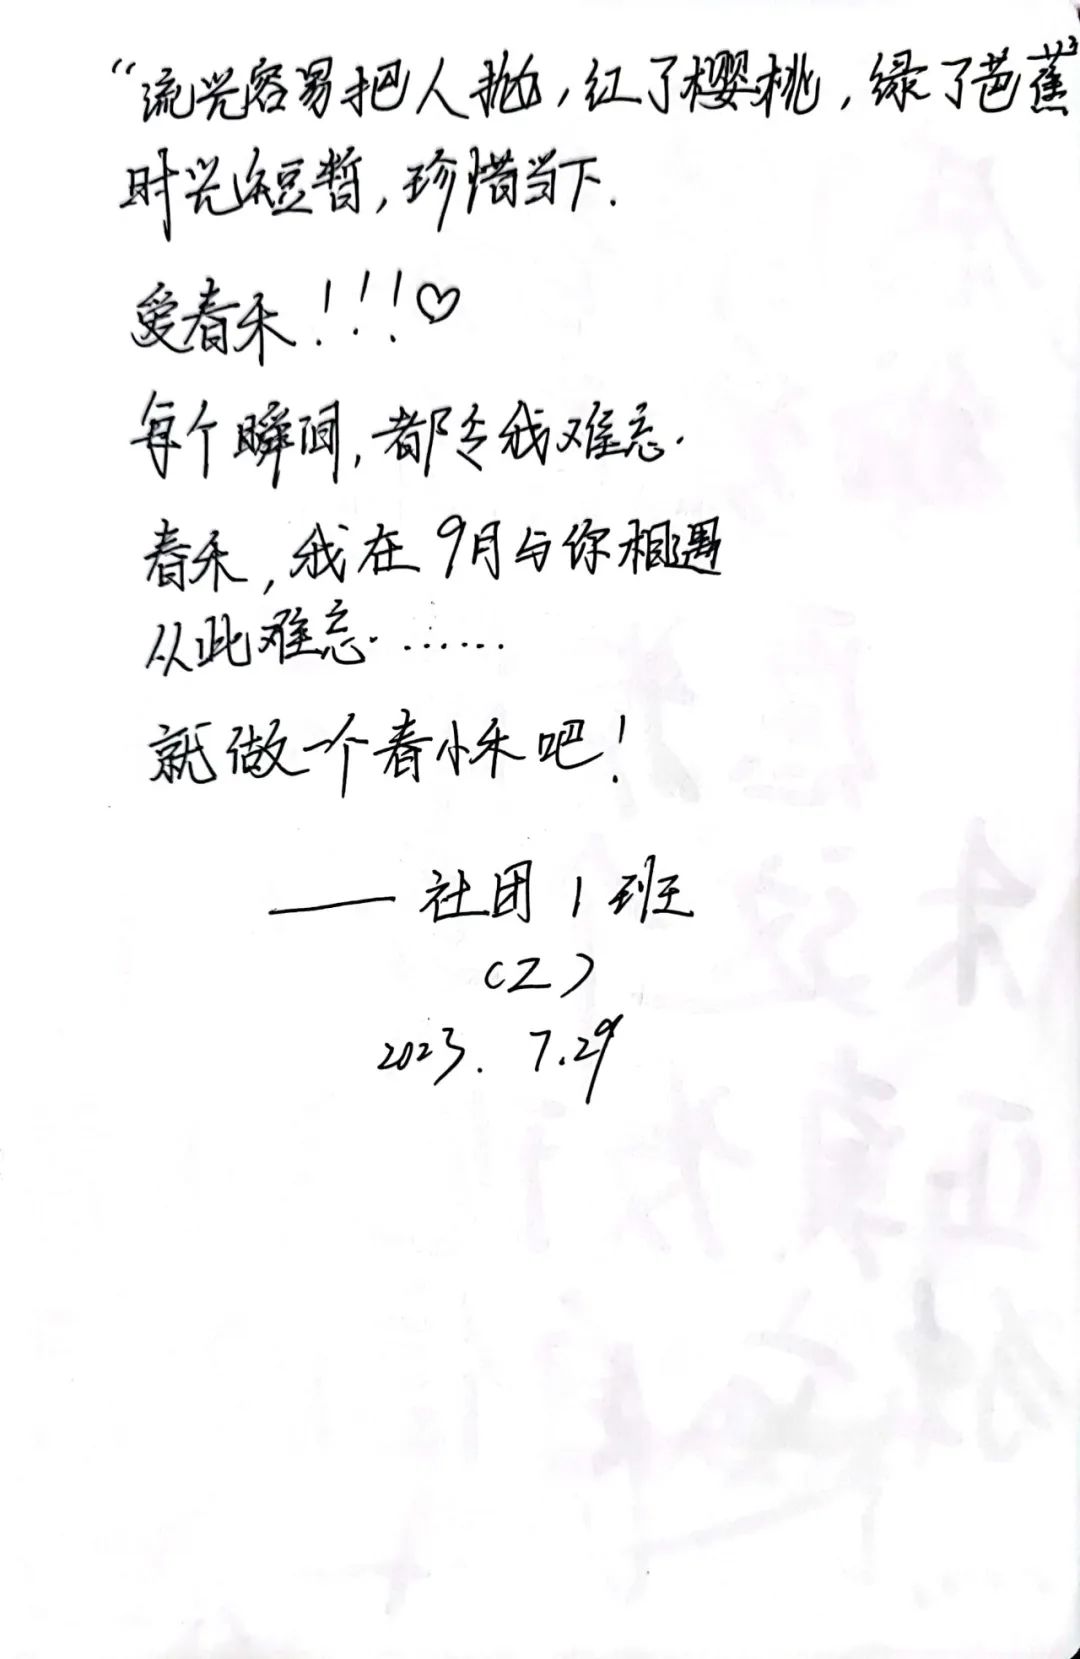 “流光容易把人抛,红了樱桃,绿了芭蕉”
时光短暂,珍惜当下.
爱春禾!!!♡
每个瞬间,都令我难忘.
春禾,我在9月与你相遇
从此难忘.……
就做一个春小禾吧!
——社团1班
(2)
2023.7.29